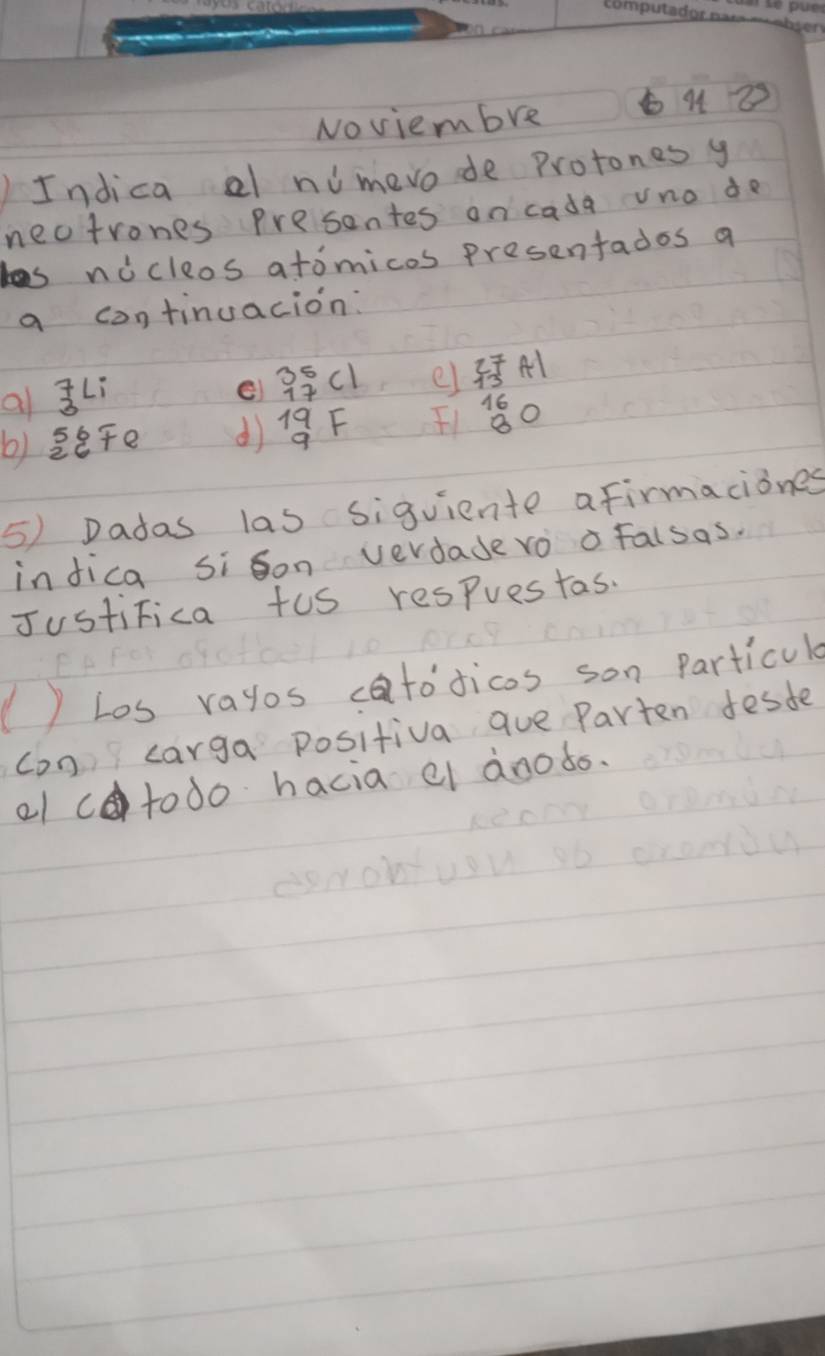 Noviembre 6 11 23
) Indica el número de Protones y
neutrones Presentes en cada uno de
los núcleos atómicos Presentados a
a continuación:
a) 7 3 Li c) 35 17 Cl e) 27 13 Al
b) 56 26 Fe d) 19 9 F F) 16 8 O
5) Dadas las siguiente afirmaciónes
indica si son verdadero o Falsas.
Justifica tus respuestas.
( ) Los rayos catódicos son Particul
con carga Positiva que Parten desde
el catodo hacia el ánodo.